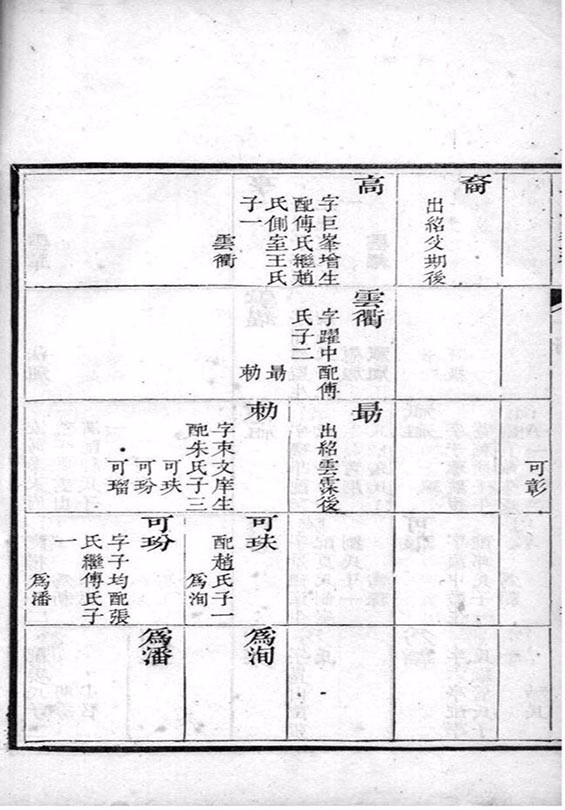 裔
出紹㸚期後
高
字巨峯增生
配傅氏繼趙
氏側室王氏
子一
雲衢
雲衢
字躍中配傅
氏子二
勗
勑
可彰
勗
出紹雲霖後
勑
字東文庠生
配朱氏子三
可玞
可玢
可瑠
可玞
配趙氏子一
為洵
可玢
字子均配張
氏繼傅氏子
一
為潘
為洵
為潘